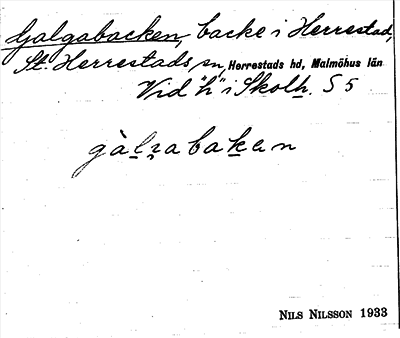 Galgabacken, backe i Herrestad,
St. Herrestads sn, Herrestads hd, Malmöhus län
Vid "h" i Skolh. S 5
gàlɀabaken
NILS NILSSON 1933